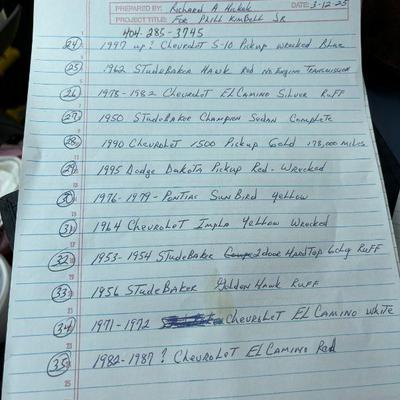 PREPARED BY: Richard A Hulak DATE: 3-12-25
PROJECT TITLE: For Phill Kimbell Jr
404-285-3745
24 1997 up? Chevrolet S-10 Pickup Wrecked Blue
25 1962 Studebaker Hawk Red No Engine Transmission
26 1978-1982 Chevrolet El Camino Silver Ruff
27 1950 Studebaker Champion Sudan Complete
28 1990 Chevrolet 1500 Pickup Gold 178,000 miles
29 1995 Dodge Dakota Pickup Red - Wrecked
30 1976-1979 - Pontiac Sun Bird Yellow
31 1964 Chevrolet Impla Yellow Wrecked
32 1953-1954 Studebaker Coupe 2 door Hard Top 6cly Ruff
33 1956 Studebaker Golden Hawk Ruff
34 1971-1972 Chevrolet El Camino White
35 1982-1987? Chevrolet El Camino Red